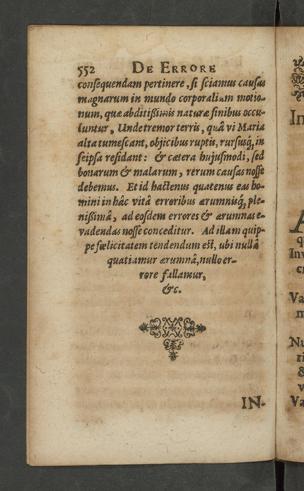 552 DE ERRORE
consequendam pertinere, si sciamus causas
magnarum in mundo corporalium motio-
num, quæ abditissimis naturæ finibus occu-
luntur, Unde tremor terris, quâ vi Maria
alta tumescant, objicibus ruptis, rursusq́; in
seipsa residant: & cætera hujusmodi, sed
bonarum & malarum, rerum causas nosse
debemus. Et id hactenus quatenus eas ho-
mini in hâc vitâ erroribus ærumnisq́; ple-
nissimâ, ad eosdem errores & ærumnas e-
vadendas nosse conceditur. Ad illam quip-
pe fœlicitatem tendendum est, ubi nullâ
quatiamur ærumnâ, nullo er-
rore fallamur,
&c.
IN-
In
A
q
Inv
c
Va
m
Nu
ri
&
v
Va